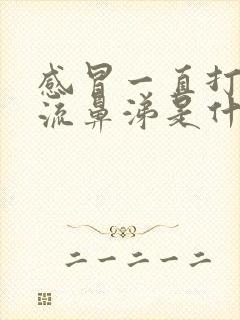 感冒一直打
流鼻涕是什
二一二一二